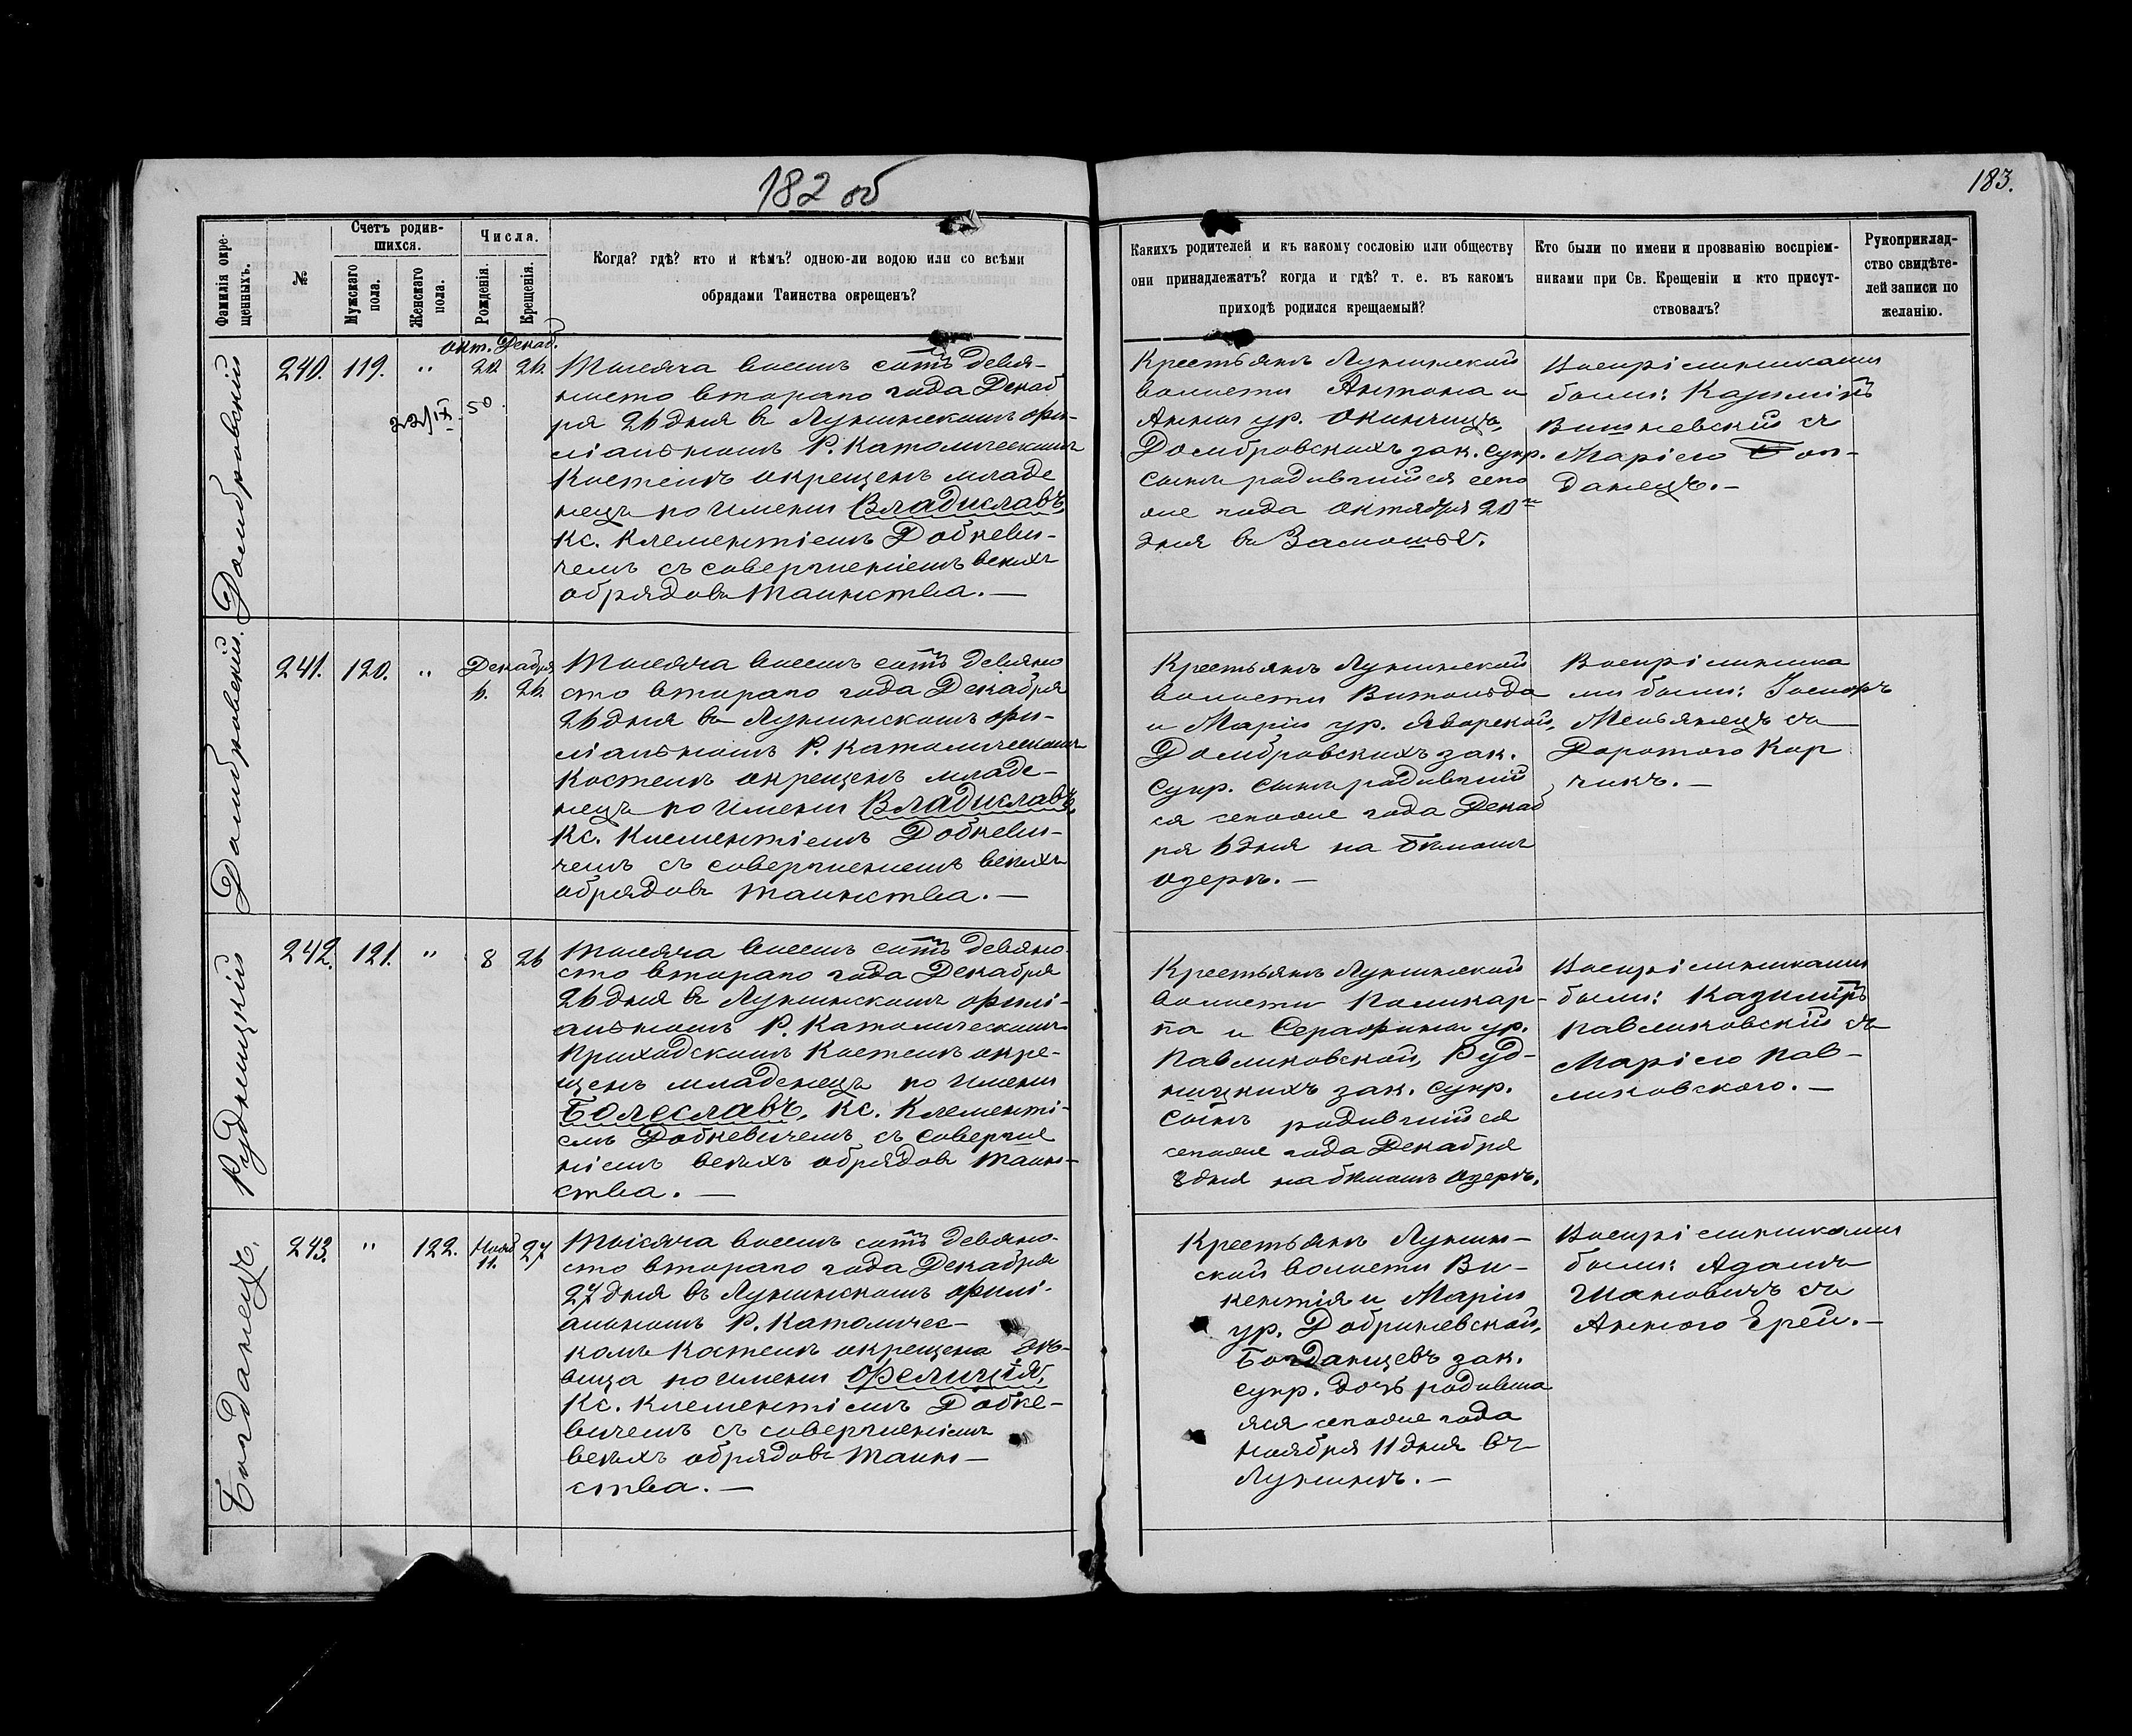 182 об
183.
Фамилія окре-
щенныхъ.
№
Счетъ родив-
шихся.
Мужскаго
пола.
Женскаго
пола.
Числа.
Рожденія.
Крещенія.
Когда? гдѣ? кто и кѣмъ? одною-ли водою или со всѣми
обрядами Таинства окрещенъ?
Какихъ родителей и къ какому сословію или обществу
они принадлежатъ? когда и гдѣ? т. е. въ какомъ
приходѣ родился крещаемый?
Кто были по имени и прозванію воспріем-
никами при Св. Крещеніи и кто присут-
ствовалъ?
Рукоприклад-
ство свидѣте-
лей записи по
желанію.
Домбровскій
240.
119.
"
Окт. Декаб.
20. 26.
22/IX 50
Тысяча восемь сотъ девя-
носто втораго года Декаб
ря 26 дня в Лунинскомъ фи-
ліальномъ Р. Католическомъ
Костелѣ окрещенъ младе
нецъ по имени Владиславъ,
Кс. Клементіемъ Добкеви-
чемъ съ совершеніемъ всѣхъ
обрядовъ Таинства. —
Крестьянъ Лунинской
волости Антона и
Анны ур. Окинчицъ,
Домбровскихъ зак. супр.
сынъ родившійся сего
же года Октября 20го
дня въ Замошьѣ.
Воспріемниками
были: Казиміръ
Вишневскій съ
Маріею Бог-
данецъ. —
Домбровскій.
241.
120.
"
Декабря
6. 26.
Тысяча восемь сотъ девяно
сто втораго года Декабря
26 дня въ Лунинскомъ фи-
ліальномъ Р. Католическомъ
Костелѣ окрещенъ младе-
нецъ по имени Владиславъ,
Кс. Клементіемъ Добкеви-
чемъ съ совершеніемъ всѣхъ
обрядовъ Таинства. —
Крестьянъ Лунинской
волости Витольда
и Маріи ур. Яворской,
Домбровскихъ зак.
супр. сынъ родившій
ся сегоже года Декаб
ря 6 дня на Бѣломъ
озерѣ. —
Воспріемника
ми были: Іосифъ
Мельянецъ съ
Доротою Кор
чикъ. —
Рудницкій
242.
121.
"
8
26
Тысяча восемь сотъ девяно-
сто втораго года Декабря
26 дня в Лунинскомъ филі-
альномъ Р. Католическомъ
Приходскомъ Костелѣ окре-
щенъ младенецъ по имени
Болеславъ, Кс. Клементі-
емъ Добкевичемъ съ соверше
ніемъ всѣхъ обрядовъ Таин-
ства. —
Крестьянъ Лунинской
волости Поликар-
па и Серафины ур.
Павликовской, Руд-
ницкихъ зак. супр.
сынъ родившійся
сегоже года Декабря
8 дня на бѣломъ озерѣ.
Воспріемниками
были: Казиміръ
Павликовскій съ
Маріею Пав-
ликовскою. —
Богданецъ.
243.
"
122.
Нояб
11.
27
Тысяча восемь сотъ девяно-
сто втораго года Декабря
27 дня въ Лунинскомъ филі-
альномъ Р. Католичес-
комъ Костелѣ окрещена дѣ-
вица по имени Фелиція,
Кс. Клементіемъ Добке-
вичемъ съ совершеніемъ
всѣхъ обрядовъ Таин-
ства. —
Крестьянъ Лунин-
ской волости Ви-
кентія и Маріи
ур. Добриневской,
Богданцевъ зак.
супр. дочь родивша
яся сегоже года
Ноября 11 дня въ
Лунинѣ. —
Воспріемниками
были: Адамъ
Шановичъ съ
Анною Ерей. —